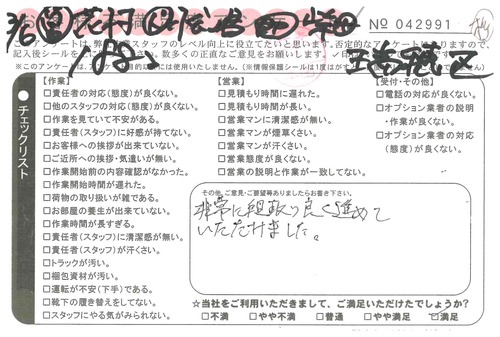 3/6
No 042991
このアンケートは、弊社スタッフのレベル向上に役立てたいと思います。否定的なアンケートになりますので、
チェックリスト
【作業】
□責任者の対応(態度)が良くない。
□他のスタッフの対応(態度)が良くない。
□作業を見ていて不安がある。
□責任者(スタッフ)に好感が持てない。
□お客様への挨拶が出来ていない。
□ご近所への挨拶・気遣いが無い。
□作業開始前の内容確認がなかった。
□作業開始時間が遅れた。
□荷物の取り扱いが雑である。
□お部屋の養生が出来ていない。
□作業時間が長すぎる。
□責任者(スタッフ)に清潔感が無い。
□責任者(スタッフ)が汗くさい。
□トラックが汚い。
□梱包資材が汚い。
□運転が不安(下手)である。
□靴下の履き替えをしてない。
□スタッフにやる気がみられない。
【営業】
□見積もり時間に遅れた。
□見積もり時間が長い。
□営業マンに清潔感が無い。
□営業マンが煙草くさい。
□営業マンが汗くさい。
□営業態度が良くない。
□営業の説明と作業が一致してない。
【受付・その他】
□電話の対応が良くない。
□オプション業者の説明
・作業が良くない。
□オプション業者の対応
(態度)が良くない。
その他、ご意見・ご要望等ありましたらお書き下さい。
非常に段取り良く進めて
いただけました。
☆当社をご利用いただきまして、ご満足いただけたでしょうか?
□不満 □やや不満 □普通 □やや満足 □満足